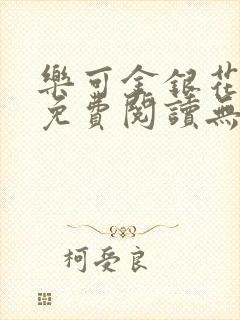 樂可金銀花
免費閱讀無
柯受良